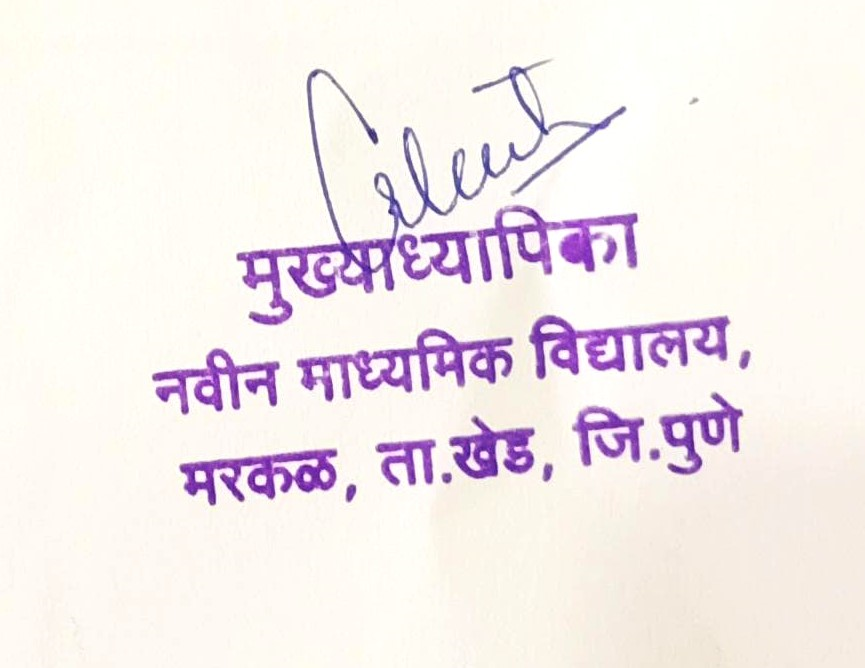 मुख्याध्यापिका
नवीन माध्यमिक विद्यालय,
मरकळ, ता.खेड, जि.पुणे